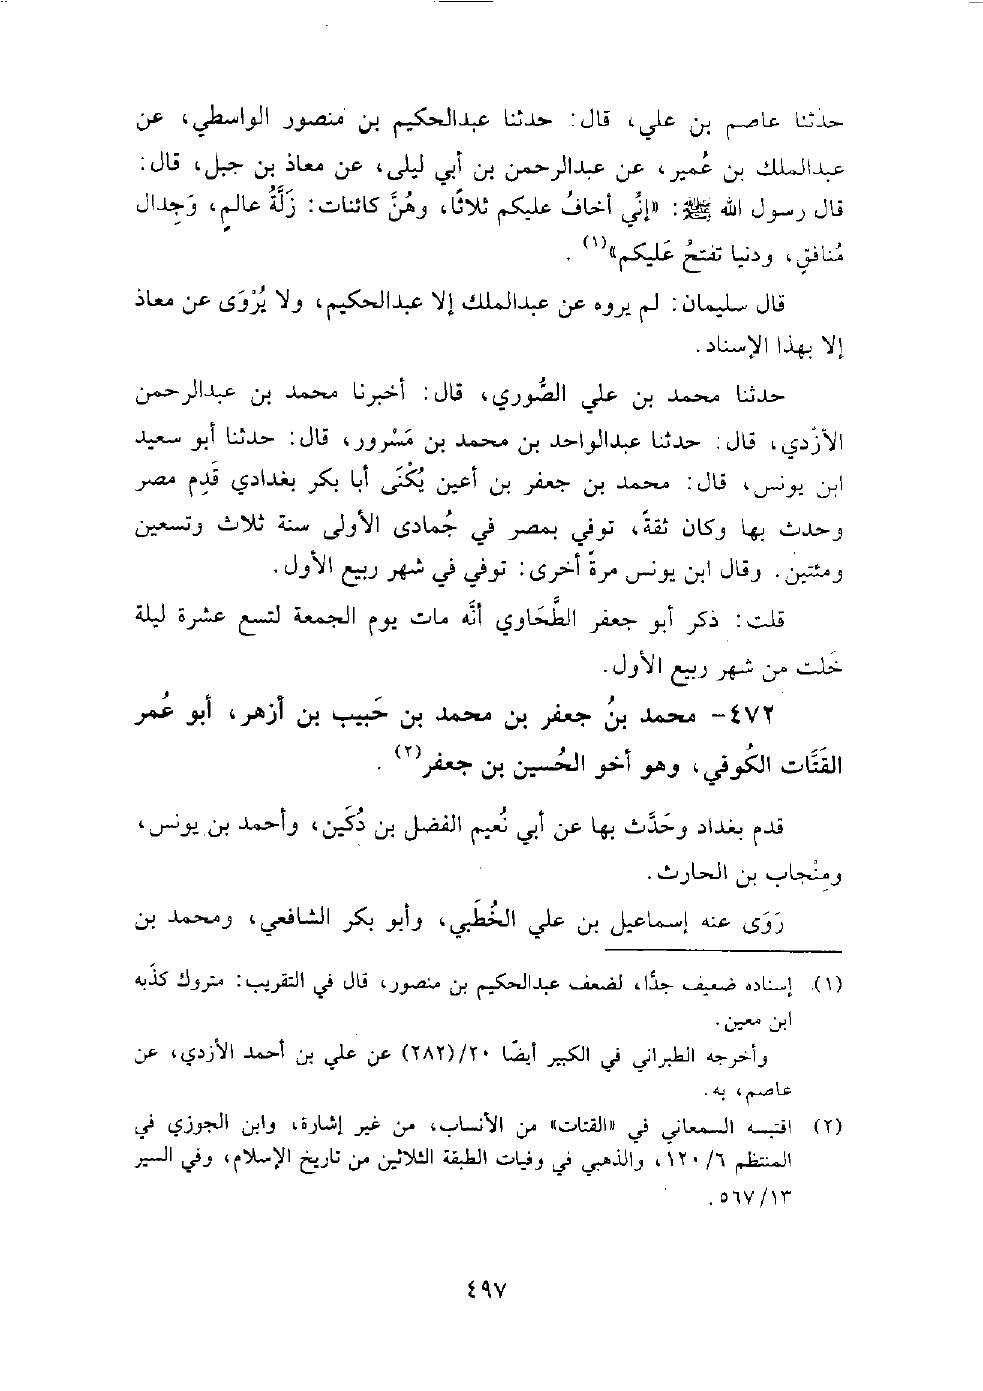 حدثنا عاصم بن علي، قال: حدثنا عبدالحكيم بن منصور الواسطي، عن
عبدالملك بن عُمير، عن عبدالرحمن بن أبي ليلى، عن معاذ بن جبل، قال:
قال رسول الله ﷺ: «إنِّي أخافُ عليكم ثلاثًا، وهُنَّ كائنات: زَلَّةُ عالمٍ، وَجِدال
مُنافقٍ، ودنيا تفتحُ عَليكم»(١) .
قال سليمان: لم يروه عن عبدالملك إلا عبدالحكيم، ولا يُرْوَى عن معاذ
إلا بهذا الإسناد.
حدثنا محمد بن علي الصُّوري، قال: أخبرنا محمد بن عبدالرحمن
الأزْدي، قال: حدثنا عبدالواحد بن محمد بن مَسْرور، قال: حدثنا أبو سعيد
ابن يونس، قال: محمد بن جعفر بن أعين يُكْنَى أبا بكر بغدادي قَدِم مصر
وحدث بها وكان ثقةً، توفي بمصر في جُمادى الأولى سنة ثلاث وتسعين
ومئتين. وقال ابن يونس مرةً أخرى: توفي في شهر ربيع الأول.
قلت: ذكر أبو جعفر الطَّحَاوي أنَّه مات يوم الجمعة لتسع عشرة ليلة
خَلت من شهر ربيع الأول.
٤٧٢- محمد بنُ جعفر بن محمد بن حَبيب بن أزهر، أبو عُمر
القَتَّات الكُوفي، وهو أخو الحُسين بن جعفر(٢) .
قدم بغداد وحَدَّث بها عن أبي نُعيم الفضل بن دُكَين، وأحمد بن يونس،
ومِنْجاب بن الحارث.
رَوَى عنه إسماعيل بن علي الخُطَبي، وأبو بكر الشافعي، ومحمد بن
(١) إسناده ضعيف جدًا، لضعف عبدالحكيم بن منصور، قال في التقريب: متروك كذَّبه
ابن معين.
وأخرجه الطبراني في الكبير أيضًا ٢٠/(٢٨٢) عن علي بن أحمد الأزدي، عن
عاصم، به.
(٢) اقتبسه السمعاني في «القتات» من الأنساب، من غير إشارة، وابن الجوزي في
المنتظم ٦/ ١٢٠، والذهبي في وفيات الطبقة الثلاثين من تاريخ الإسلام، وفي السير
١٣/ ٥٦٧ .
٤٩٧